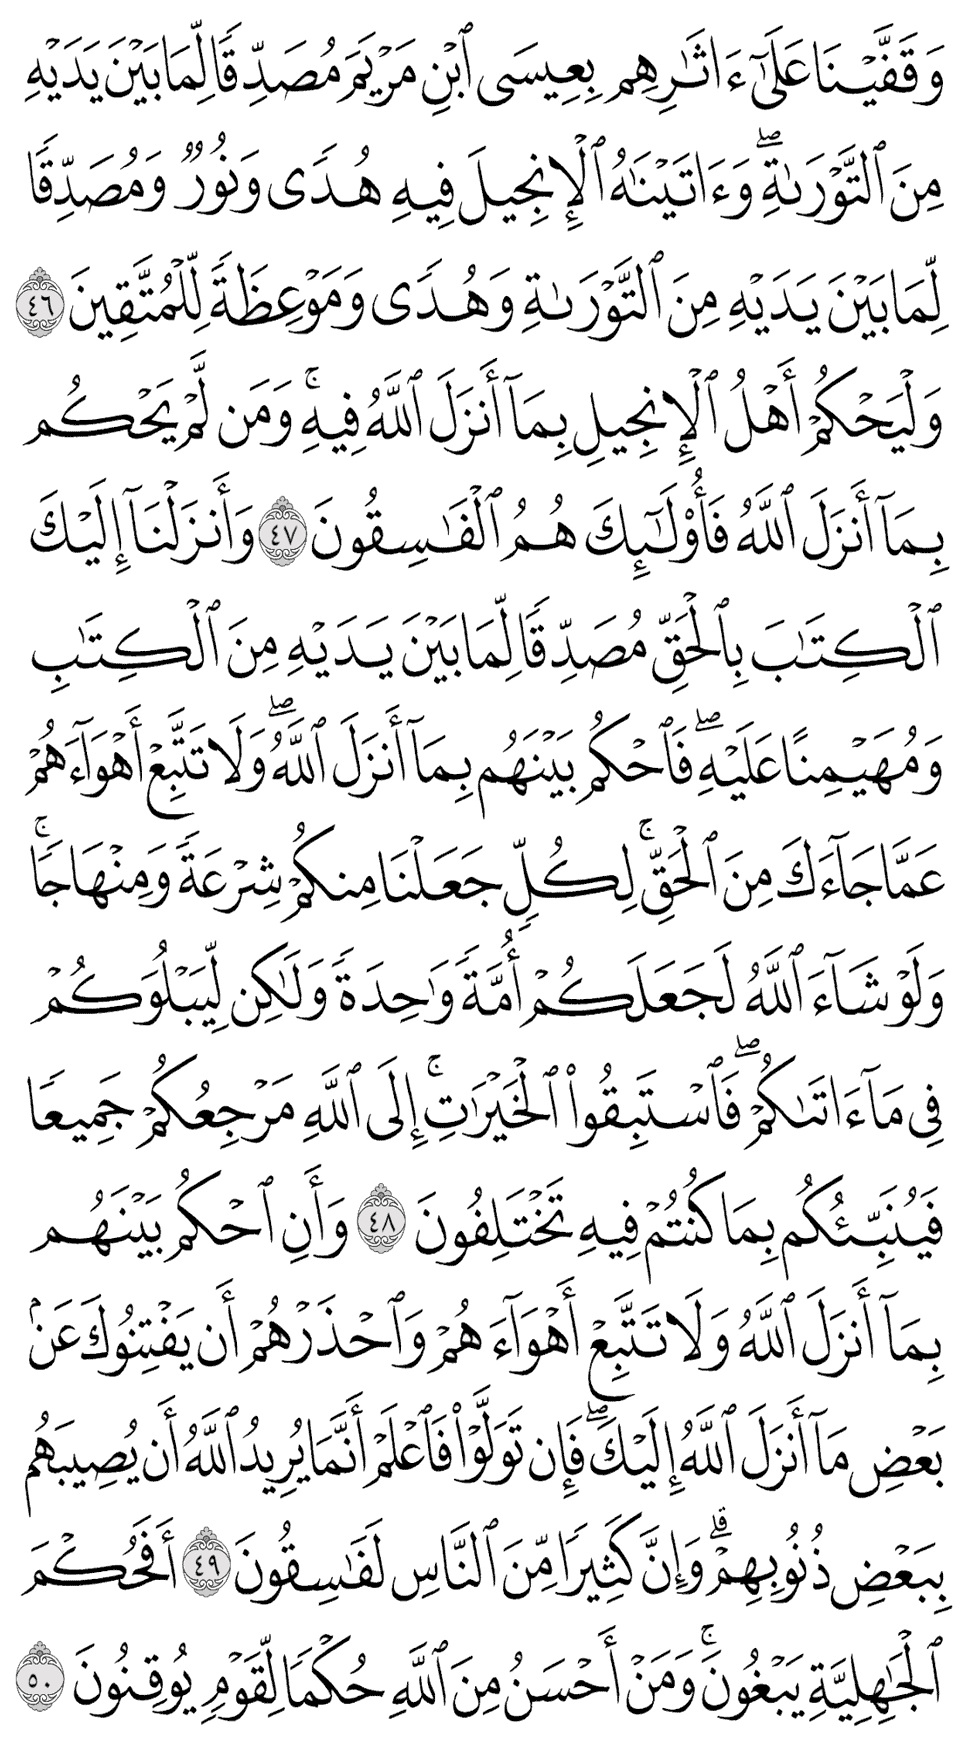 وَقَفَّيْنَا عَلَىٰٓ ءَاثَٰرِهِم بِعِيسَى ٱبْنِ مَرْيَمَ مُصَدِّقًا لِّمَا بَيْنَ يَدَيْهِ
مِنَ ٱلتَّوْرَىٰةِ ۖ وَءَاتَيْنَٰهُ ٱلْإِنجِيلَ فِيهِ هُدًى وَنُورٌ وَمُصَدِّقًا
لِّمَا بَيْنَ يَدَيْهِ مِنَ ٱلتَّوْرَىٰةِ وَهُدًى وَمَوْعِظَةً لِّلْمُتَّقِينَ ٤٦
وَلْيَحْكُمْ أَهْلُ ٱلْإِنجِيلِ بِمَآ أَنزَلَ ٱللَّهُ فِيهِ ۚ وَمَن لَّمْ يَحْكُم
بِمَآ أَنزَلَ ٱللَّهُ فَأُو۟لَٰٓئِكَ هُمُ ٱلْفَٰسِقُونَ ٤٧ وَأَنزَلْنَآ إِلَيْكَ
ٱلْكِتَٰبَ بِٱلْحَقِّ مُصَدِّقًا لِّمَا بَيْنَ يَدَيْهِ مِنَ ٱلْكِتَٰبِ
وَمُهَيْمِنًا عَلَيْهِ ۖ فَٱحْكُم بَيْنَهُم بِمَآ أَنزَلَ ٱللَّهُ ۖ وَلَا تَتَّبِعْ أَهْوَآءَهُمْ
عَمَّا جَآءَكَ مِنَ ٱلْحَقِّ ۚ لِكُلٍّ جَعَلْنَا مِنكُمْ شِرْعَةً وَمِنْهَاجًا ۚ
وَلَوْ شَآءَ ٱللَّهُ لَجَعَلَكُمْ أُمَّةً وَٰحِدَةً وَلَٰكِن لِّيَبْلُوَكُمْ
فِى مَآ ءَاتَىٰكُمْ ۖ فَٱسْتَبِقُوا۟ ٱلْخَيْرَٰتِ ۚ إِلَى ٱللَّهِ مَرْجِعُكُمْ جَمِيعًا
فَيُنَبِّئُكُم بِمَا كُنتُمْ فِيهِ تَخْتَلِفُونَ ٤٨ وَأَنِ ٱحْكُم بَيْنَهُم
بِمَآ أَنزَلَ ٱللَّهُ وَلَا تَتَّبِعْ أَهْوَآءَهُمْ وَٱحْذَرْهُمْ أَن يَفْتِنُوكَ عَنۢ
بَعْضِ مَآ أَنزَلَ ٱللَّهُ إِلَيْكَ ۖ فَإِن تَوَلَّوْا۟ فَٱعْلَمْ أَنَّمَا يُرِيدُ ٱللَّهُ أَن يُصِيبَهُم
بِبَعْضِ ذُنُوبِهِمْ ۗ وَإِنَّ كَثِيرًا مِّنَ ٱلنَّاسِ لَفَٰسِقُونَ ٤٩ أَفَحُكْمَ
ٱلْجَٰهِلِيَّةِ يَبْغُونَ ۚ وَمَنْ أَحْسَنُ مِنَ ٱللَّهِ حُكْمًا لِّقَوْمٍ يُوقِنُونَ ٥٠